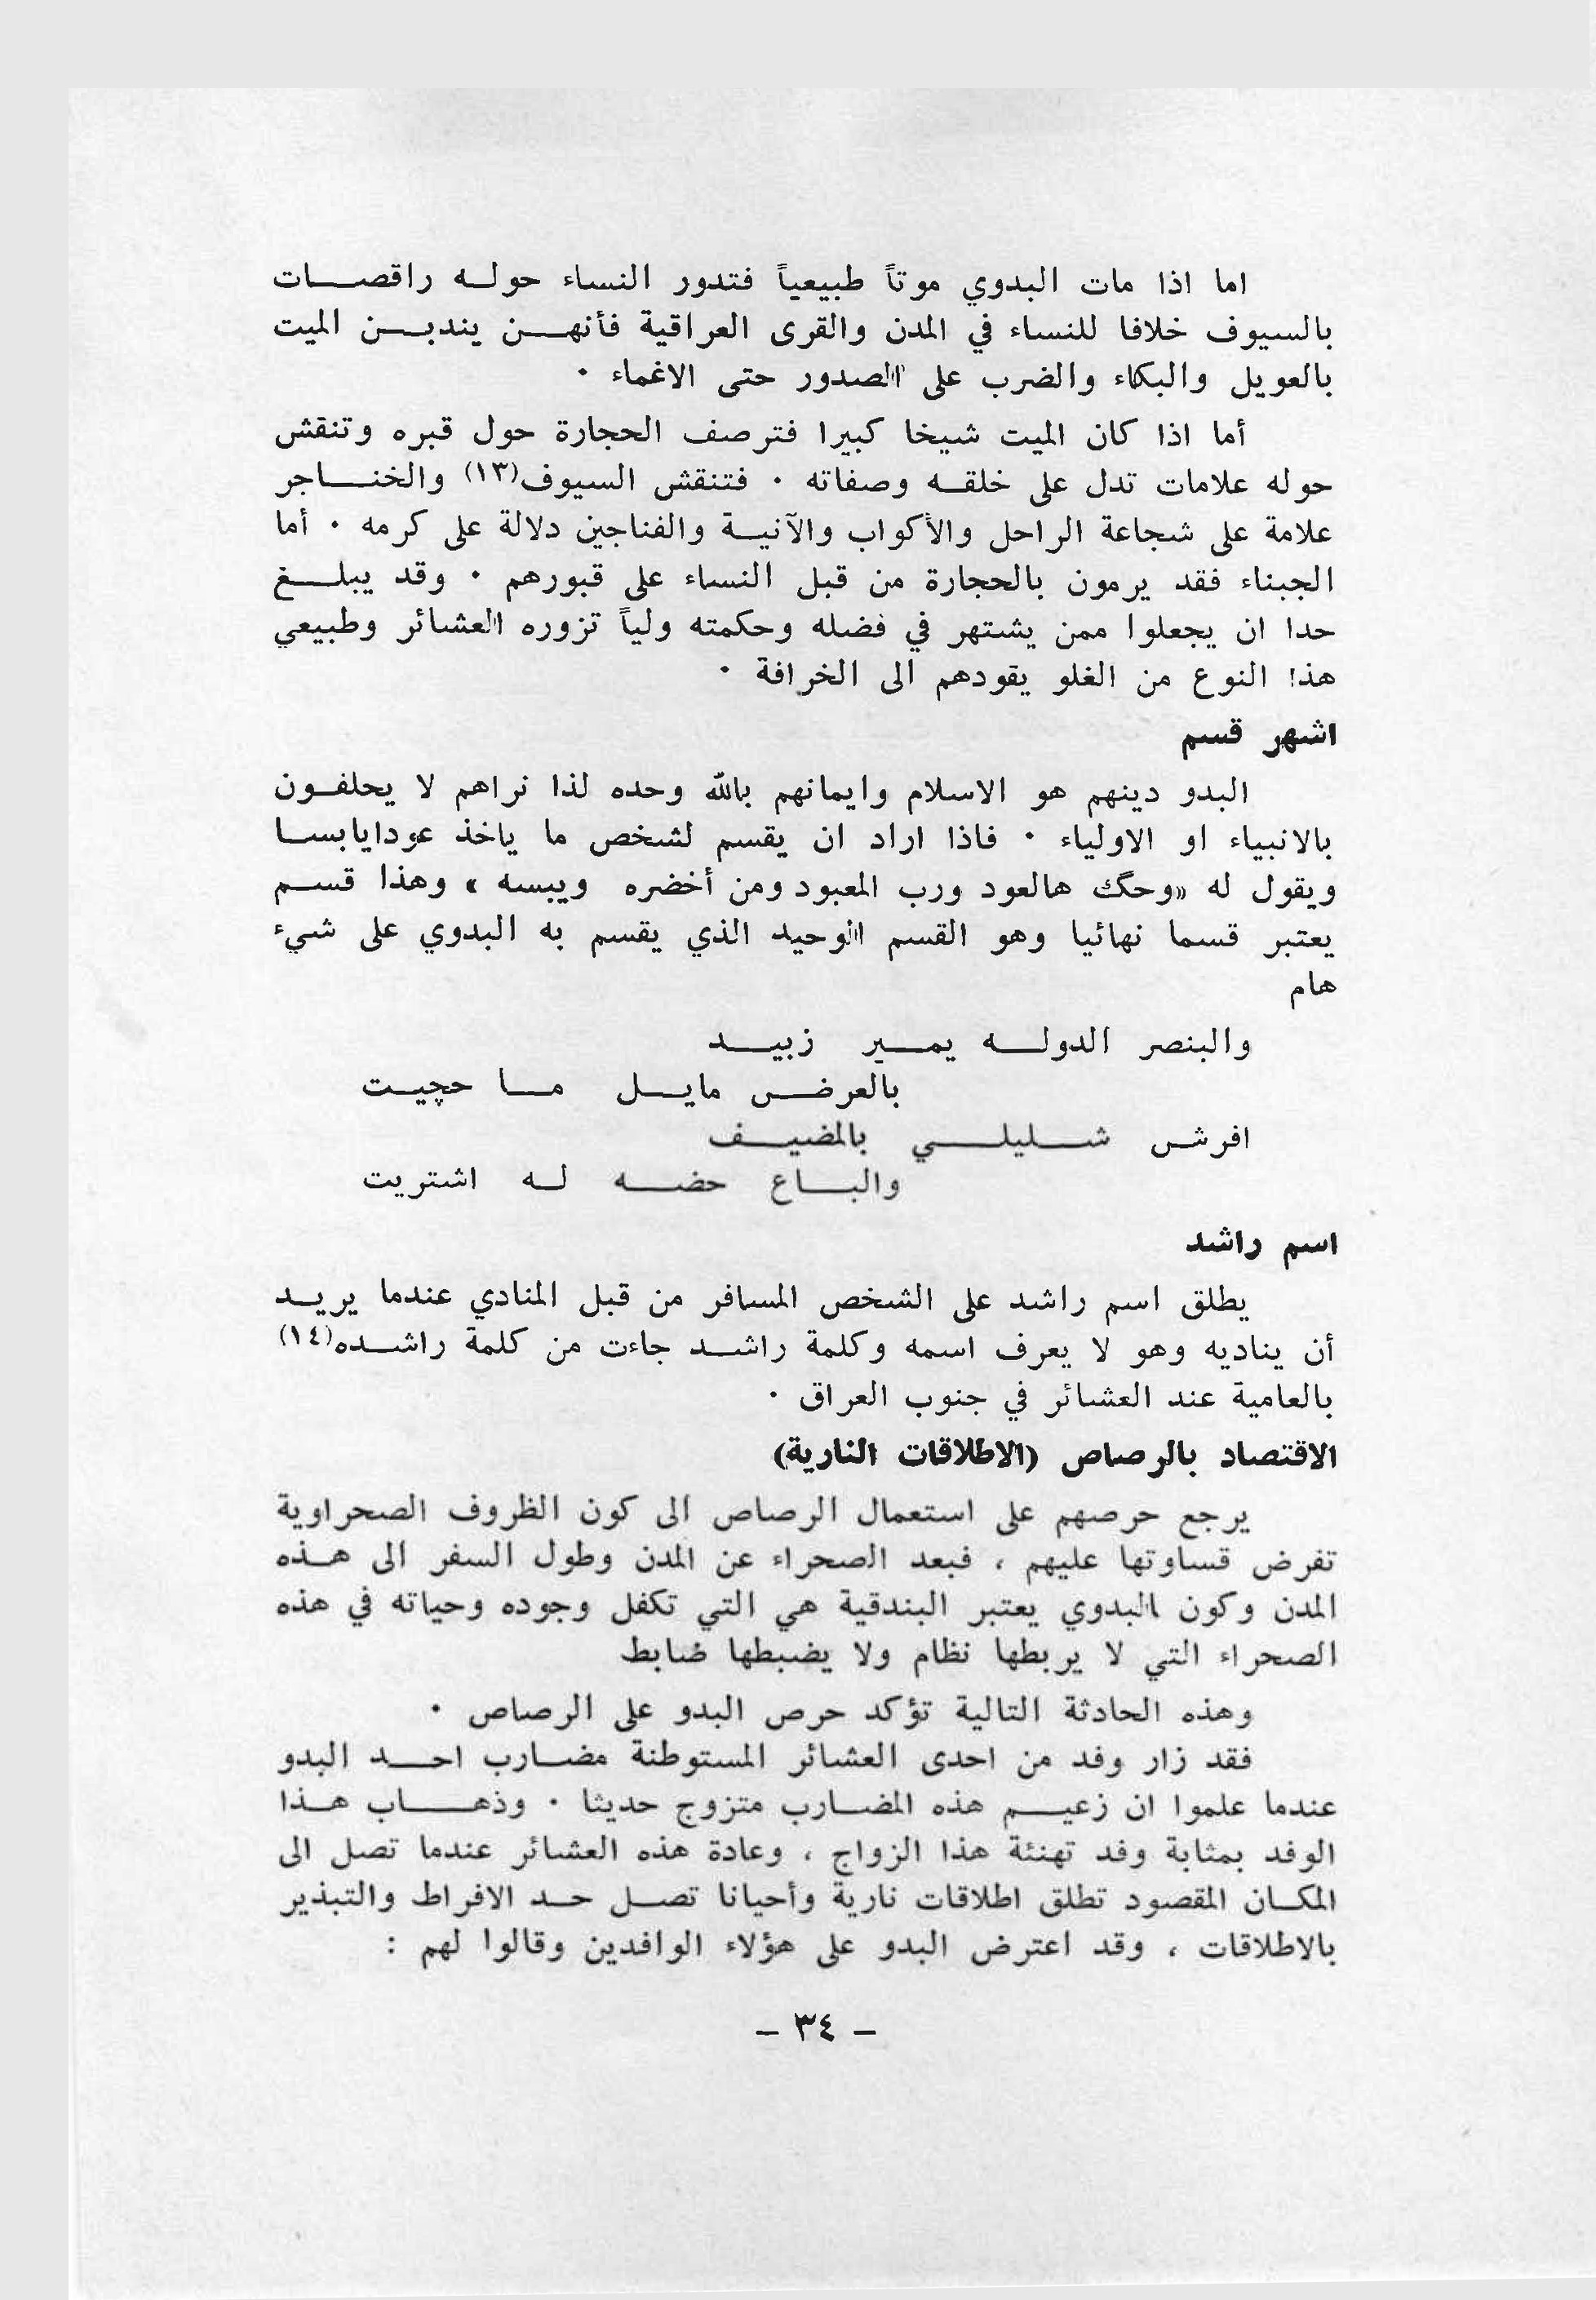 اما اذا مات البدوي موتاً طبيعياً فتدور النساء حوله راقصات
بالسيوف خلافا للنساء في المدن والقرى العراقية فأنهن يندبن الميت
بالعويل والبكاء والضرب على الصدور حتى الاغماء ٠
أما اذا كان الميت شيخا كبيرا فترصف الحجارة حول قبره وتنقش
حوله علامات تدل على خلقه وصفاته ٠ فتنقش السيوف(١٣) والخناجر
علامة على شجاعة الراحل والأكواب والآنية والفناجين دلالة على كرمه ٠ أما
الجبناء فقد يرمون بالحجارة من قبل النساء على قبورهم ٠ وقد يبلغ
حدا ان يجعلوا ممن يشتهر في فضله وحكمته ولياً تزوره العشائر وطبيعي
هذا النوع من الغلو يقودهم الى الخرافة ٠
اشهر قسم
البدو دينهم هو الاسلام وايمانهم بالله وحده لذا نراهم لا يحلفون
بالانبياء او الاولياء ٠ فاذا اراد ان يقسم لشخص ما ياخذ عودايابسا
ويقول له «وحگ هالعود ورب المعبود ومن أخضره ويبسه» وهذا قسم
يعتبر قسما نهائيا وهو القسم الوحيد الذي يقسم به البدوي على شيء
هام
والبنصر الدوله يمير زبيد
بالعرض مايل ما حچيت
افرش شليلي بالمضيف
والباع حضه له اشتريت
اسم راشد
يطلق اسم راشد على الشخص المسافر من قبل المنادي عندما يريد
أن يناديه وهو لا يعرف اسمه وكلمة راشد جاءت من كلمة راشده(١٤)
بالعامية عند العشائر في جنوب العراق ٠
الاقتصاد بالرصاص (الاطلاقات النارية)
يرجع حرصهم على استعمال الرصاص الى كون الظروف الصحراوية
تفرض قساوتها عليهم ، فبعد الصحراء عن المدن وطول السفر الى هذه
المدن وكون البدوي يعتبر البندقية هي التي تكفل وجوده وحياته في هذه
الصحراء التي لا يربطها نظام ولا يضبطها ضابط
وهذه الحادثة التالية تؤكد حرص البدو على الرصاص ٠
فقد زار وفد من احدى العشائر المستوطنة مضارب احد البدو
عندما علموا ان زعيم هذه المضارب متزوج حديثا ٠ وذهاب هذا
الوفد بمثابة وفد تهنئة هذا الزواج ، وعادة هذه العشائر عندما تصل الى
المكان المقصود تطلق اطلاقات نارية وأحيانا تصل حد الافراط والتبذير
بالاطلاقات ، وقد اعترض البدو على هؤلاء الوافدين وقالوا لهم :
– ٣٤ –